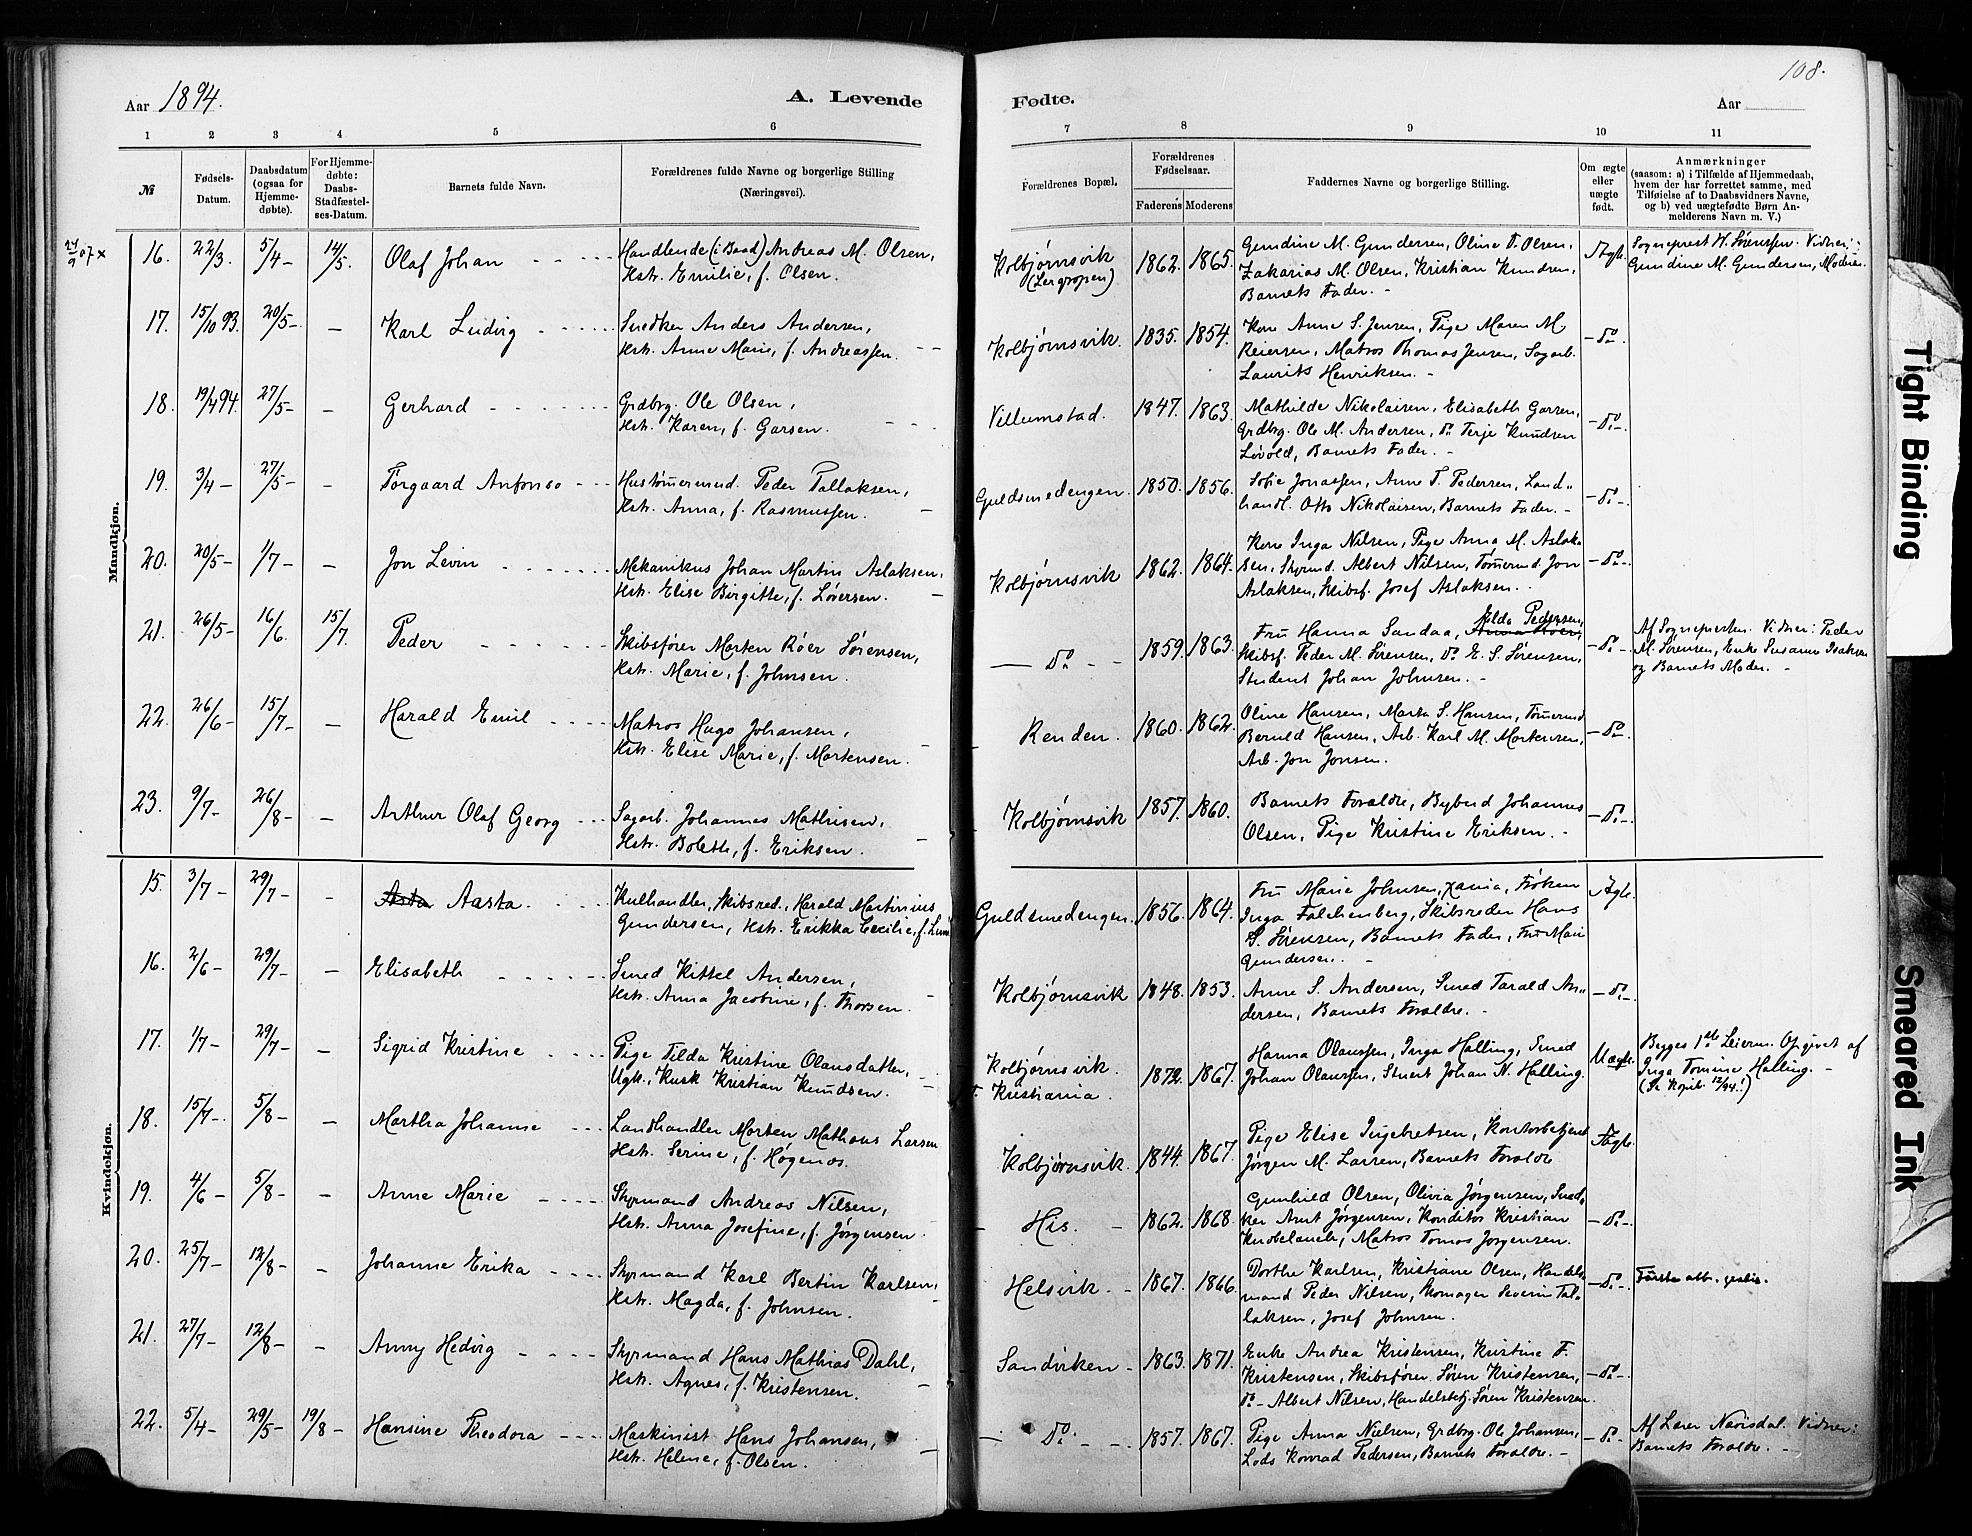 Aar 1894.
A. Levende
1 2 3 4 5 6
№ Fødsels-Datum. Daabsdatum (ogsaa for Hjemmedøbte). For Hjemmedøbte: Daabs-Stadfæstelses-Datum. Barnets fulde Navn. Forældrenes fulde Navne og borgerlige Stilling (Næringsvei).
Mandkjøn.
16. 22/3. 5/4 - 14/5. Olaf Johan Handlende (i Baad) Andreas M. Olsen,
Hstr. Emilie, f. Olsen.
17. 15/10 93. 20/5 - - Karl Ludvig Snedker Anders Andersen,
Hstr. Anne Marie, f. Andreassen.
18. 19/4 94. 27/5 - - Gerhard Grdbrg. Ole Olsen,
Hstr. Karen, f. Garsen.
19. 3/4 - 27/5 - - Torgaard Anfonso Hustømermd. Peder Tallaksen,
Hstr. Anna, f. Rasmussen.
20. 20/5 - 1/7 - - Jon Levin Mekanikus Johan Martin Aslaksen,
Hstr. Elise Birgitte, f. Løversen.
21. 26/5 - 16/6. 15/7. Peder Skibsfører Morten Röer Sørensen,
Hstr. Marie, f. Johnsen.
22. 26/6 - 15/7 - - Harald Emil Matros Hugo Johansen,
Hstr. Elise Marie, f. Mortensen.
23. 9/7 - 26/8 - - Arthur Olaf Georg Sagarb. Johannes Mathisen,
Hstr. Boleth, f. Eriksen.
Kvindekjøn.
15. 3/7 - 29/7 - - Asta Aasta. Kulhandler, Skibsred., Harald Martinius
Gundersen, Hstr. Erikka Cecilie, f.
16. 2/6 - 29/7 - - Elisabeth Smed Kittel Andersen,
Hstr. Anna Jacobine, f. Thorsen.
17. 1/7 - 29/7 - - Sigrid Kristine Pige Tilda Kristine Olausdatter,
Ugk., Kusk Kristian Knudsen.
18. 15/7 - 5/8 - - Martha Johanne Landhandler Morten Mathæus Larsen
Hstr. Serine, f. Høgenes.
19. 4/6 - 5/8 - - Anne Marie Styrmand Andreas Nilsen,
Hstr. Anna Josefine, f. Jørgensen.
20. 25/7 - 12/8 - - Johanne Erika Styrmand Karl Bertin Karlsen,
Hstr. Magda, f. Johnsen.
21. 27/7 - 12/8 - - Anny Hedvig Styrmand Hans Mathias Dahl,
Hstr. Agnes, f. Kristensen.
22. 5/4 - 29/5 - 19/8 - Hansine Theodora Maskinist Hans Johansen,
Hstr. Helene, f. Olsen.
108.
Fødte.
Aar
7 8 9 10 11
Forældrenes Bopæl. Forældrenes Fødselsaar. Faderens Moderens Faddernes Navne og borgerlige Stilling. Om ægte eller uægte født. Anmærkninger (saasom: a) i Tilfælde af Hjemmedaab, hvem der har forrettet samme, med Tilføielse af to Daabsvidners Navne, og b) ved uægtefødte Børn Anmelderens Navn m. V.)
Kolbjørnsvik (Lergropen) 1862. 1865. Gundine M. Gundersen, Oline T. Olsen,
Zakarias M. Olsen, Kristian Knudsen,
Barnets Fader. - Ægte. Sogneprest H. Sørenssen. Vidner:
Gundine M. Gundersen, Moderen.
Kolbjørnsvik. 1835. 1854. Kone Anne S. Jensen, Pige Maren M.
Reiersen, Matros Thomas Jensen, Sagarb.
Laurits Henriksen. - - Do -
Villumstad. 1847. 1863. Mathilde Nikolaisen, Elisabeth Garsen,
Grdbrg. Ole M. Andersen, Do Terje Knudsen
Løvold, Barnets Fader. - - Do -
Guldsmedengen. 1850. 1856. Sofie Jonassen, Anne T. Pedersen, Land-
handl. Otto Nikolaisen, Barnets Fader. - - Do -
Kolbjørnsvik 1862. 1864. Kone Inga Nilsen, Pige Anna M. Aslak-
sen, Styrmd. Albert Nilsen, Tømermd. Jon
Aslaksen, Skibsf. Josef Aslaksen. - Do -
- Do - 1859. 1863. Fru Hanna Sandaa, Hilda Pedersen,
Skibsf. Peder M. Sørensen, Do E. S. Sørensen,
Student Johan Johnsen. - - Do - Af Sognepresten. Vidner: Peder
M. Sørensen, Enke Susanne Isaksen
og Barnets Moder. -
Renden. 1860. 1862. Oline Hansen, Marta S. Hansen, Tømermd.
Bernld Hansen, Arb. Karl M. Mortensen,
Arb. Jon Jonsen. - Do -
Kolbjørnsvik 1857. 1860. Barnets Forældre, Bybud Johannes
Olsen, Pige Kristine Eriksen. - - Do -
Guldsmedengen. 1856. 1864. Fru Marie Johnsen, Xania, Frøken
Inga Falchenberg, Skibsreder Hans
S. Sørensen, Barnets Fader, Fru Mari
Gundersen. - Ægte.
Kolbjørnsvik 1848. 1853. Anne S. Andersen, Smed Tarald An-
dersen, Barnets Forældre. - - Do -
Kolbjørnsvik.
Kristiania. 1872. 1867. Hanna Olaussen, Inga Halling, Smed
Johan Olaussen, Stuert Johan N. Halling. Uægte. Begges 1ste Leierm. Opgivet af
Inga Tomine Halling. -
Kolbjørnsvik. 1844. 1867. Pige Elise Ingebretsen, Kontorbetjent
Jørgen M. Larsen, Barnets Forældre Ægte.
His. 1862. 1868. Gunhild Olsen, Olivia Jørgensen, Sned-
ker Arnt Jørgensen, Konditor Kristian
Knobelauch, Matros Tomas Jørgensen. - Do -
Helsvik. 1867. 1866. Dorthe Karlsen, Kristiane Olsen, Handels-
mand Peder Nilsen, Skomager Severin Tal-
laksen, Josef Johnsen. - Do -
Sandviken - 1863. 1871. Enke Andrea Kristensen, Kristine F.
Kristensen, Skibsfører Søren Kristensen,
Do - Albert Nilsen, Handelsbetj. Søren Kristensen - Do -
- Do - 1857. 1867. Pige Anna Nielsen, Grdbrg. Ole Johansen,
Lods Konrad Pedersen, Barnets Forældre. - - Do - Af Lærer Næridsdal. Vidner:
Barnets Forældre. -
Tight Binding
Smeared Ink